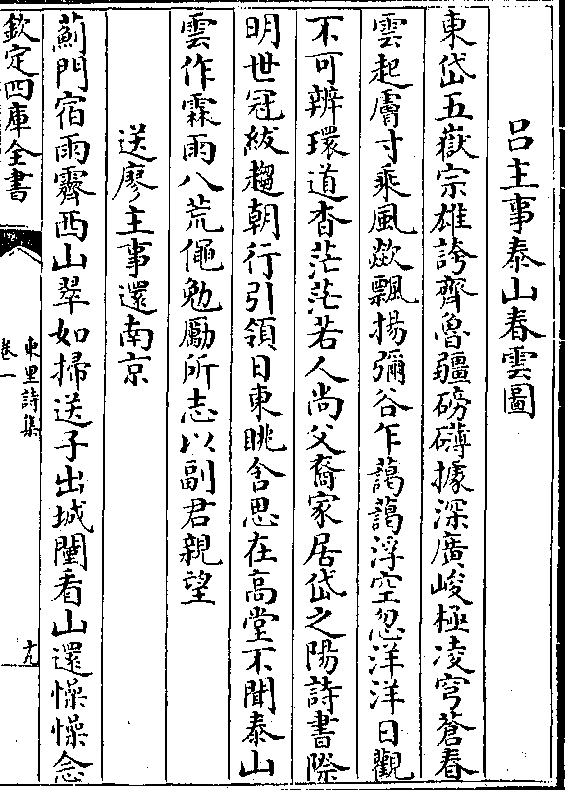 呂主事泰山春雲圖
東岱五嶽宗雄誇齊魯疆磅礴據深廣峻極凌穹蒼春
雲起膚寸乘風歘飄揚彌谷乍藹藹浮空忽洋洋日觀
不可辨環道杳茫茫若人尚父裔家居岱之陽詩書際
明世冠紱趨朝行引領日東眺含思在高堂不聞泰山
雲作霖雨八荒僶勉勵所志以副君親望
送廖主事還南京
薊門宿雨霽西山翠如掃送子出城闉看山還懆懆念
欽定四庫全書
東里詩集
卷一
十九